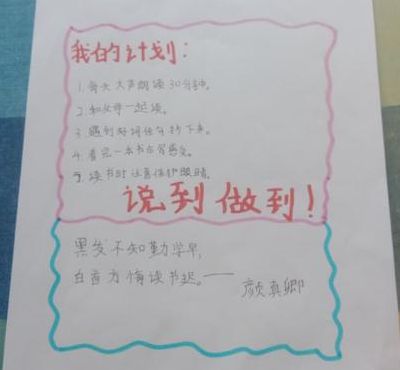 我的计划：
1.每天大声朗读30分钟。
2.和父母一起读。
3.遇到好词佳句抄下来。
4.看完一本书在写感受。
5.读书时注意保护眼睛。
说到做到！
黑发不知勤学早，
白首方悔读书迟。——
颜真卿